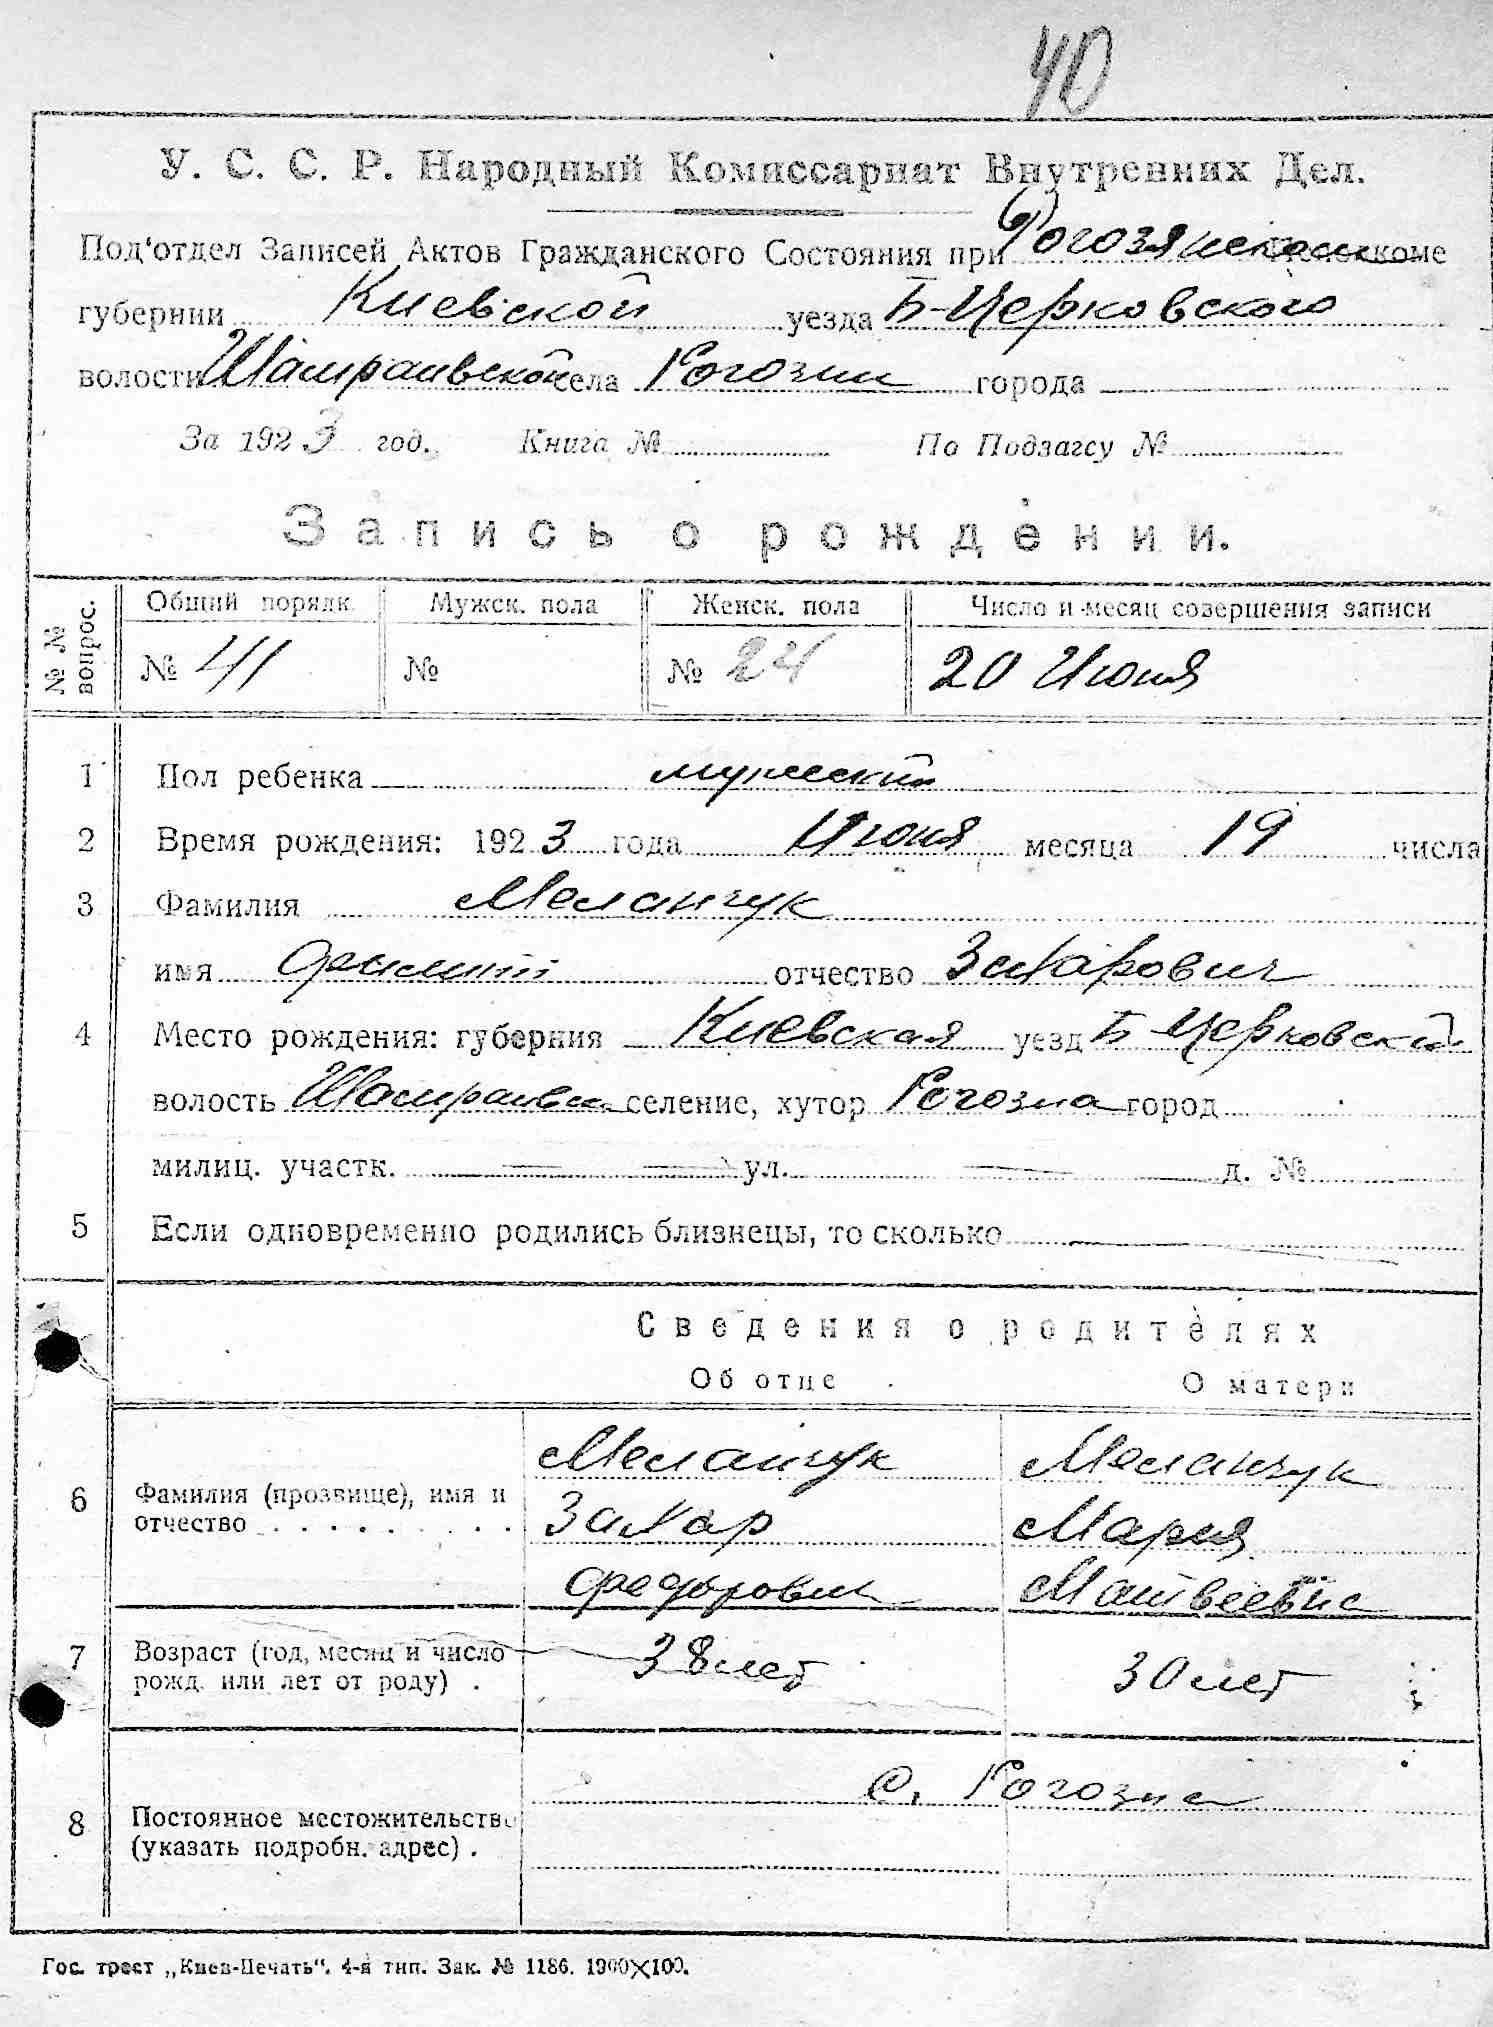 40
У. С. С. Р. Народный Комиссариат Внутренних Дел.
Под'отдел Записей Актов Гражданского Состояния при Рогозянском
губернии Киевской уезда Б-Церковского
волости Шамраивской села Рогозны города
За 1923 год. Книга № По Подзагсу №
Запись о рождении.
№ № вопрос. Общий порядк. Мужск. пола Женск. пола Число и месяц совершения записи
№ 41 № № 24 20 Июня
1 Пол ребенка мужеский
2 Время рождения: 1923 года Июня месяца 19 числа
3 Фамилия Меланчук
имя Филипп отчество Захарович
4 Место рождения: губерния Киевская уезд Б-Церковский
волость Шамраивск селение, хутор Рогозна город
милиц. участк. ул. д. №
5 Если одновременно родились близнецы, то сколько
Сведения о родителях
Об отце О матери
6 Фамилия (прозвище), имя и отчество Меланчук Меланчук
Захар Мария
Федорович Матвеевна
7 Возраст (год, месяц и число рожд. или лет от роду) . 38 лет 30 лет
8 Постоянное местожительство (указать подробн. адрес) . С. Рогозна
Гос. трест „Киев-Печать“. 4-я тип. Зак. № 1186. 1900×100.